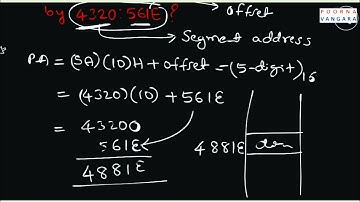 POORNA
VANGARA
by 4320:561E? offset
Segment address
PA = (SA)(10)H + offset = (5-digit)16
= (4320)(10) + 561E
= 43200
561E
4881E
4881E